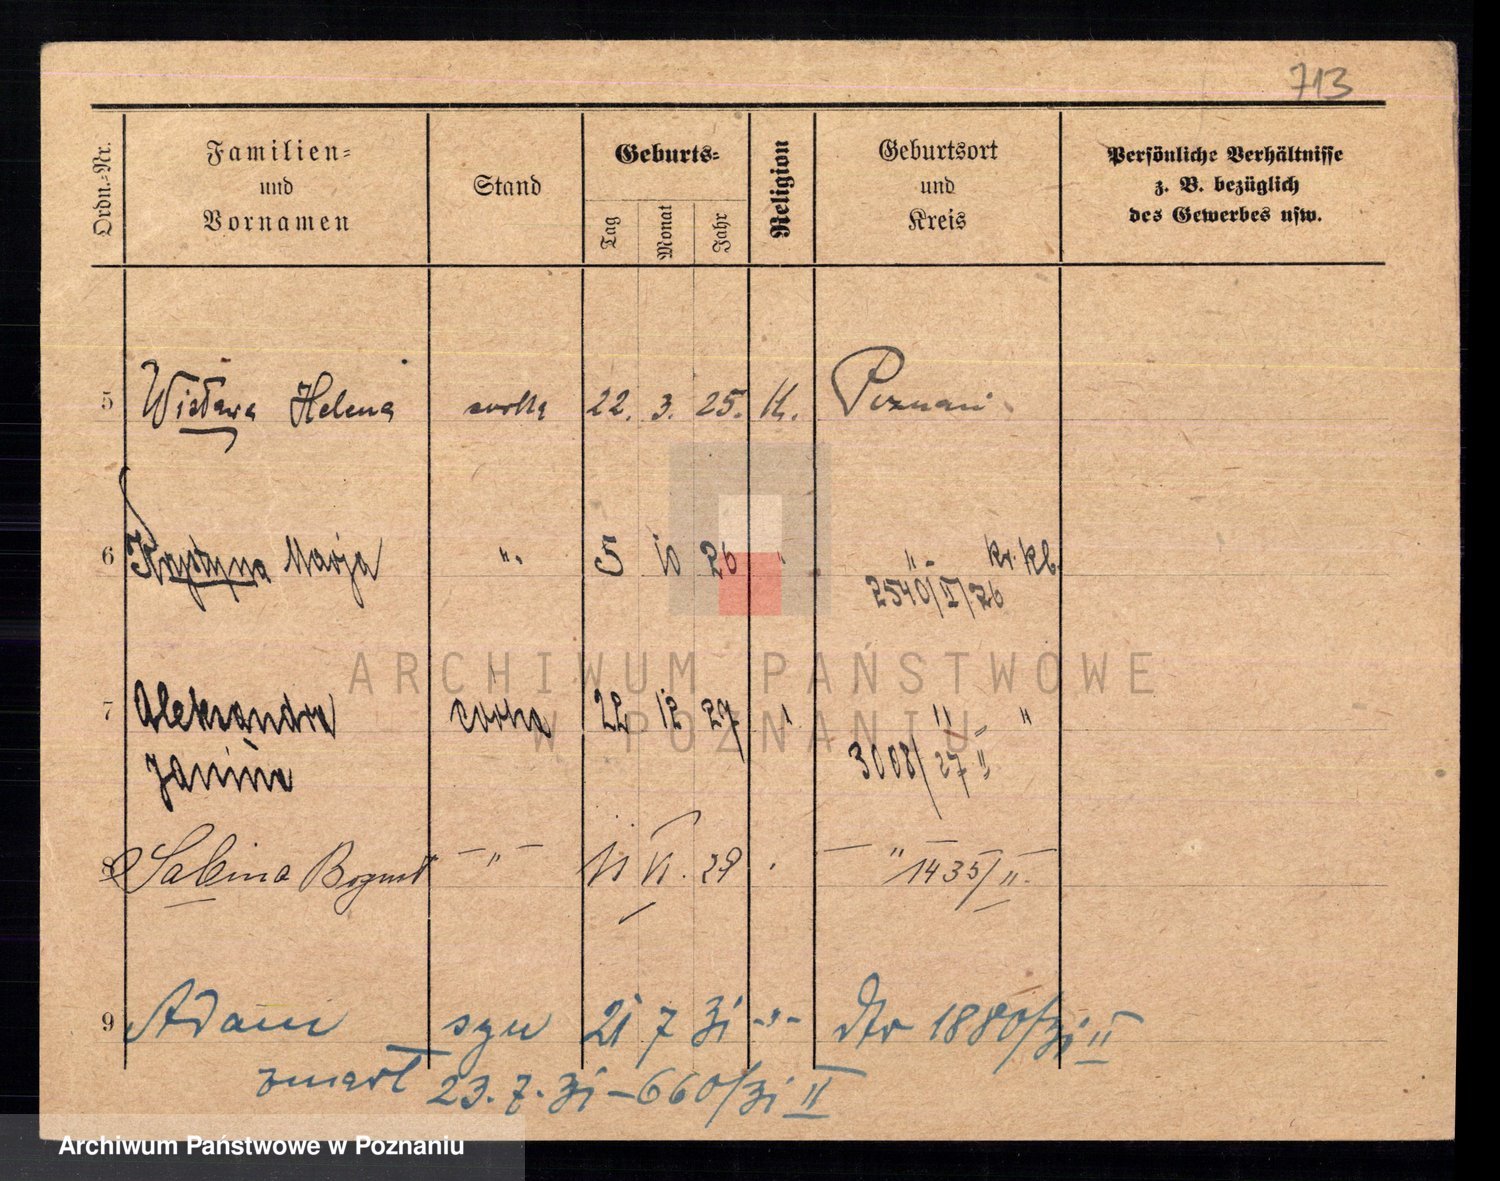 713
Ordn.-Nr.
Familien-
und
Vornamen
Stand
Geburts-
Tag
Monat
Jahr
Religion
Geburtsort
und
Kreis
Persönliche Verhältnisse
z. B. bezüglich
des Gewerbes usw.
5 Wisława Helena córka 22. 3. 25. K. Poznań
6 Krystyna Marja " 5 10 26 " " kr. kl.
2540/II/26
7 Aleksandra córka 22 12 27 " " "
Janina 3008/27 II
8 Sabina VI. 29 " 1435/II
9 Adam syn 21 7 31 -"- dto 1880/31 II
zmarł 23.7.31 - 660/31 II
ARCHIWUM PAŃSTWOWE
W POZNANIU
Archiwum Państwowe w Poznaniu